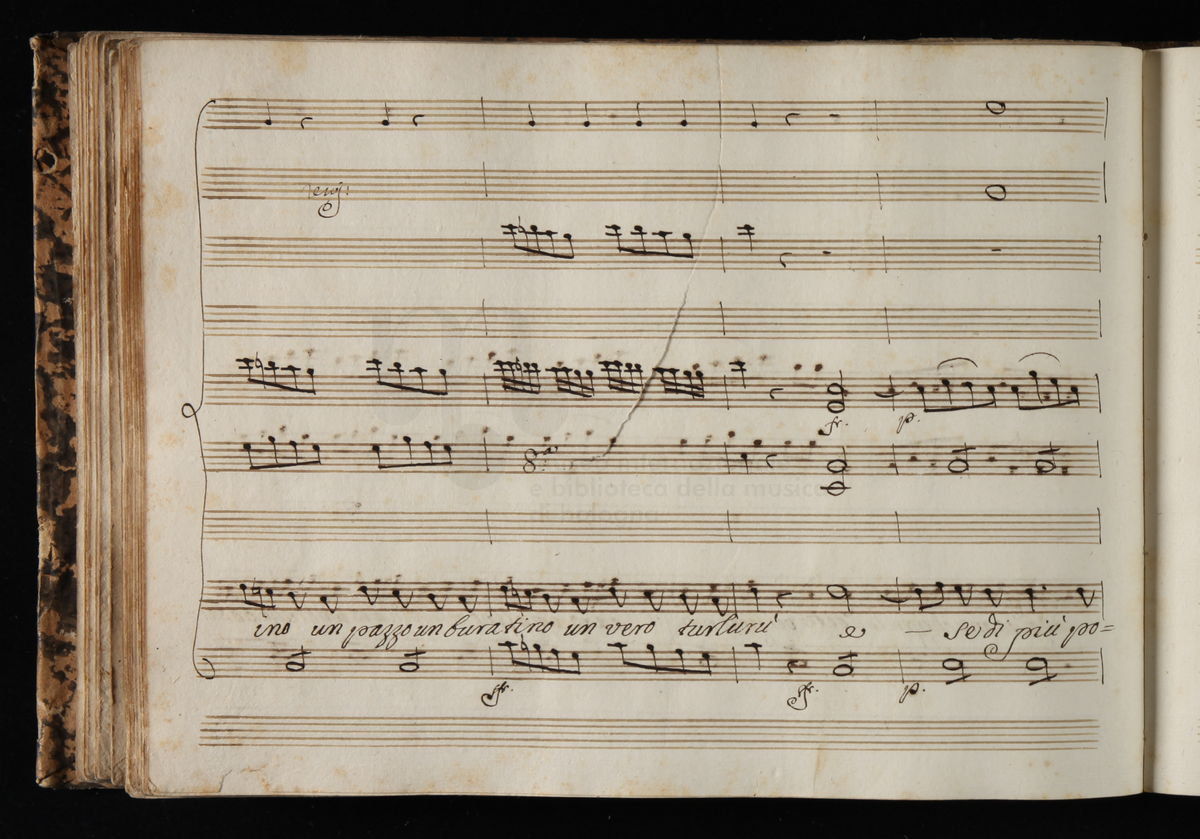 8va
fr.
p.
ino un pazzo un buratino un vero turlurù e — se di più po=
fr.
fr.
p.
e biblioteca della musica
di bologna